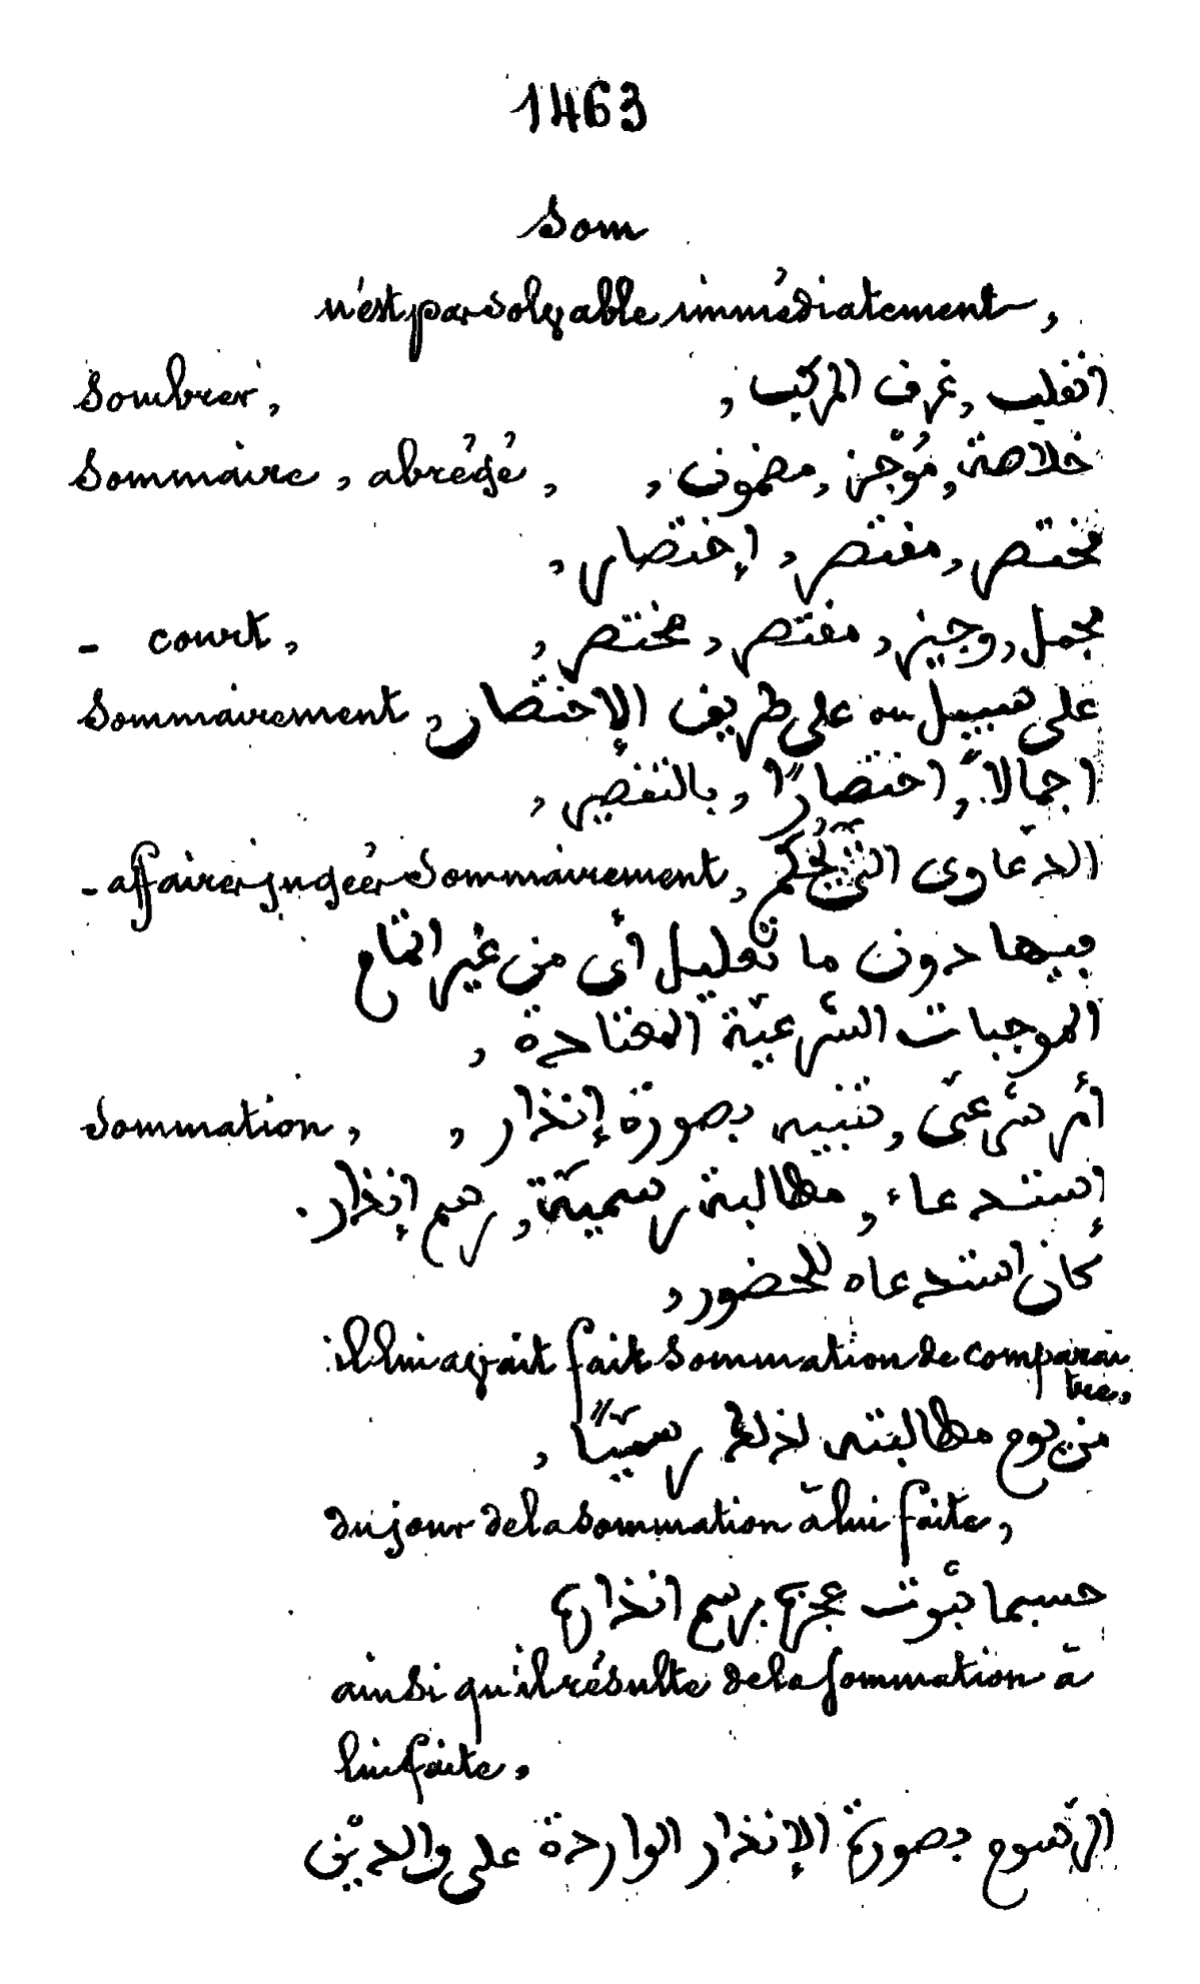 1463
Som
n'est pas solvable immédiatement,
Sombrer, انقلب, غرق المركب,
Sommaire, abrégé, خلاصة, مُوْجَز, مضمون,
مختصر, مقتصر, إختصار,
- court, مجمل, وجيز, مقتصر, مختصر,
Sommairement, على سبيل ou على طريق الإختصار,
اجمالاً, اختصارًا, بالتقصير,
- affaires jugées sommairement, الدّعاوى الّتي يُحْكَم
فيها دون ما تعليل أي من غير اتمام
الموجبات الشّرعيّة المعتادة,
Sommation, أمر شرعيّ, تنبيه بصورة إنذار,
إستدعاء, مطالبة رسميّة, رسم إنذار.
كان استدعاه للحضور,
il lui avait fait sommation de comparaitre,
من يوم مطالبته لذلك رسميّاً,
du jour de la sommation à lui faite,
حسبما ثبوت عجزه برسم انذاره
ainsi qu'il résulte de la sommation à
lui faite,
الرّسوم بصورة الإنذار الواردة على والديْن